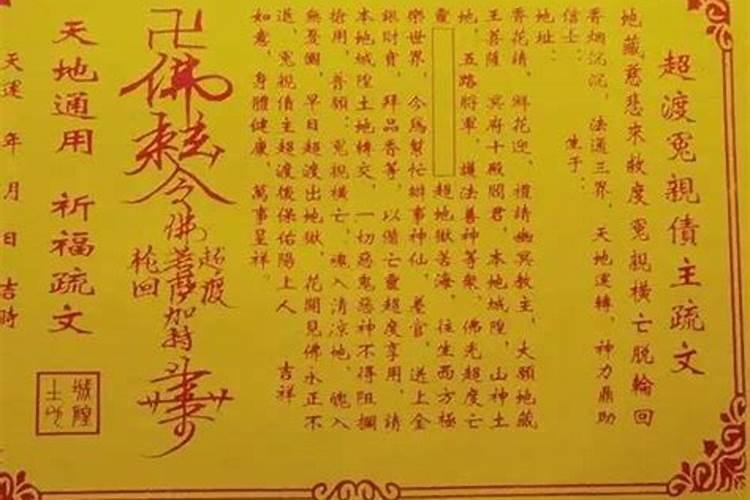 超渡冤親債主疏文
地藏慈悲來救度冤親橫亡脫輪回
香烟沉沉，法通三界，天地運轉，神力鼎助
信士：　生于：
地址：
香花請，鮮花迎，禮請幽冥教主，大願地藏
王菩薩　冥府十殿閻君，本地城隍，山神土
地，五路將軍，護法善神等衆，佛光超度亡
靈　超地獄苦海，往生西方極
樂世界，今爲幫忙辦事神仙，差官，送上金
銀財寶，拜品香等，以備亡靈超度享用，請
本地城隍土地轉交，一切惡鬼惡神不得阻攔
搶用，普願：冤親橫亡，魂入清凉地，魄入
無憂國，早日超渡出地獄，花開見佛永正不
退，冤親債主超渡後保佑陽上人　吉祥
如意，身體健康，萬事呈祥。
卍
佛
令
佛菩薩加持
超度
輪回
天地通用　祈福疏文
城隍
土地
天運　年　月　日　吉時